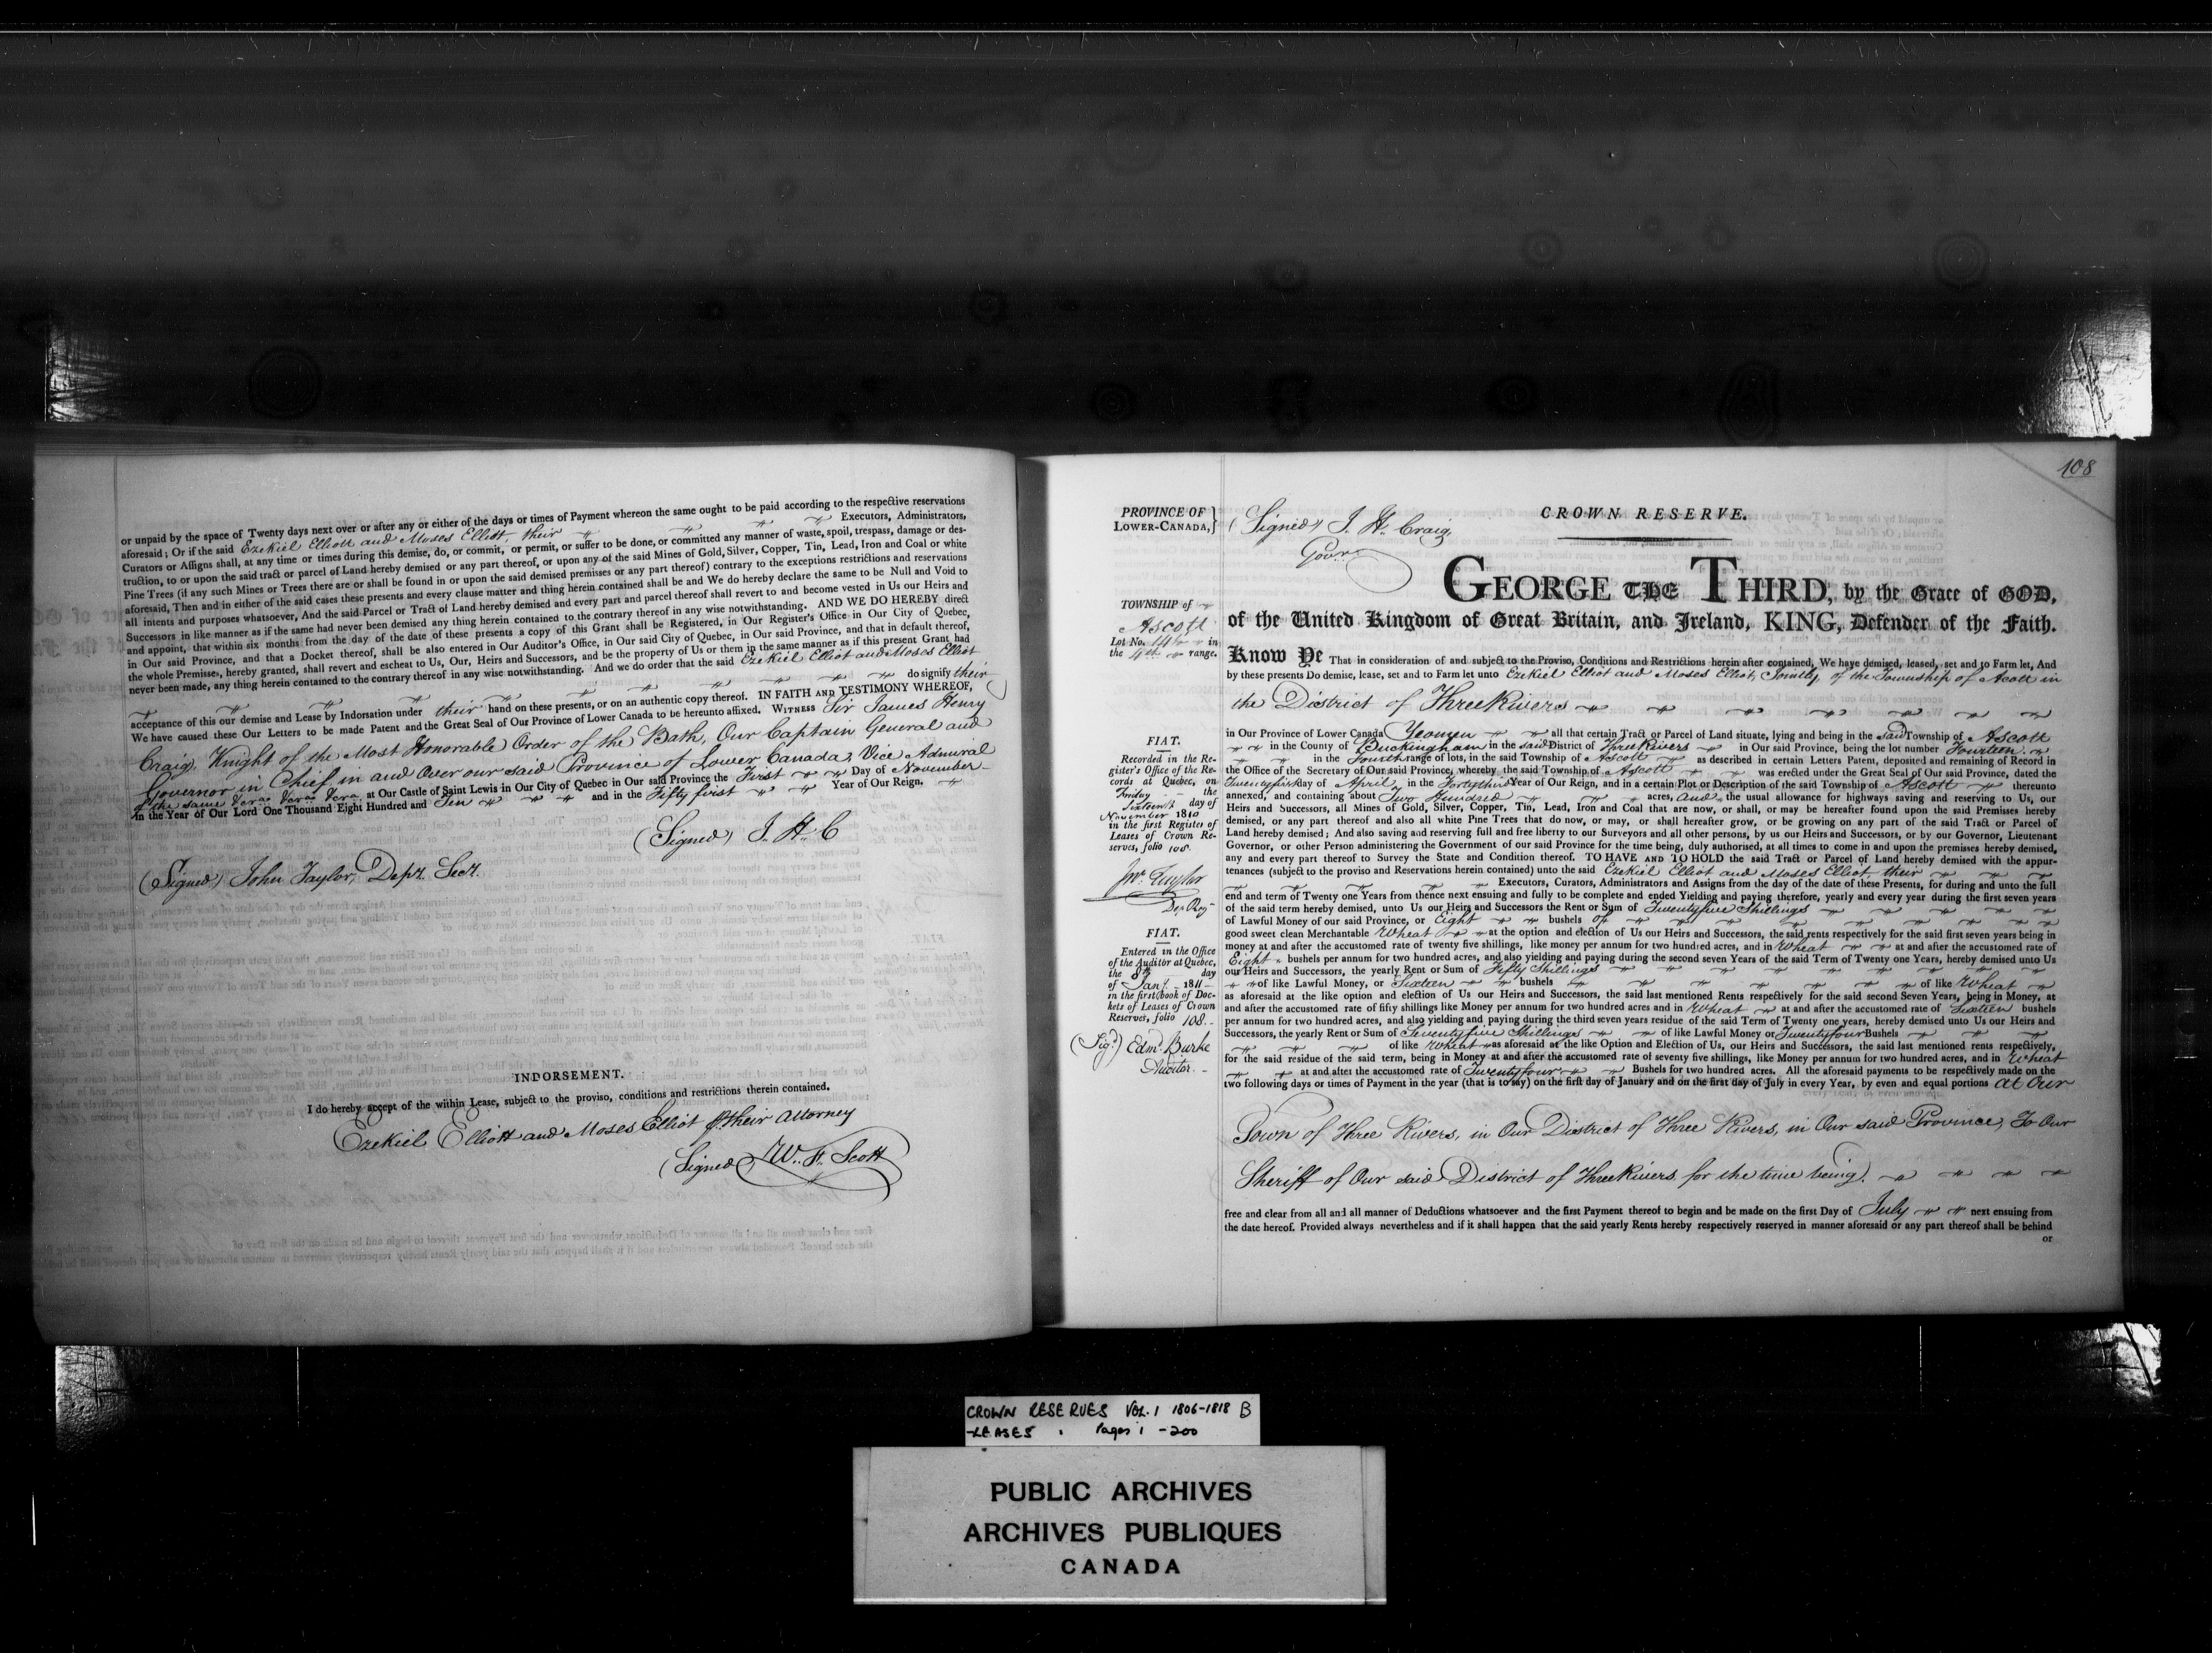 or unpaid by the space of Twenty days next over or after any or either of the days or times of Payment whereon the same ought to be paid according to the respective reservations
aforesaid; Or if the said Ezekiel Elliott and Moses Elliott, their Executors, Administrators,
Curators or Assigns shall, at any time or times during this demise, do, or commit, or permit, or suffer to be done, or committed any manner of waste, spoil, trespass, damage or des-
truction, to or upon the said tract or parcel of Land hereby demised or any part thereof, or upon any of the said Mines of Gold, Silver, Copper, Tin, Lead, Iron and Coal or white
Pine Trees (if any such Mines or Trees there are or shall be found in or upon the said demised premises or any part thereof) contrary to the exceptions restrictions and reservations
aforesaid, Then and in either of the said cases these presents and every clause matter and thing herein contained shall be and We do hereby declare the same to be Null and Void to
all intents and purposes whatsoever, And the said Parcel or Tract of Land hereby demised and every part and parcel thereof shall revert to and become vested in Us our Heirs and
Successors in like manner as if the same had never been demised any thing herein contained to the contrary thereof in any wise notwithstanding. AND WE DO HEREBY direct
and appoint, that within six months from the day of the date of these presents a copy of this Grant shall be Registered, in Our Register's Office in Our City of Quebec,
in Our said Province, and that a Docket thereof, shall be also entered in Our Auditor's Office, in Our said City of Quebec, in Our said Province, and that in default thereof,
the whole Premises, hereby granted, shall revert and escheat to Us, Our, Heirs and Successors, and be the property of Us or them in the same manner as if this present Grant had
never been made, any thing herein contained to the contrary thereof in any wise notwithstanding. And we do order that the said Ezekiel Elliot and Moses Elliott
do signify their
acceptance of this our demise and Lease by Indorsation under their hand on these presents, or on an authentic copy thereof. IN FAITH AND TESTIMONY WHEREOF,
We have caused these Our Letters to be made Patent and the Great Seal of Our Province of Lower Canada to be hereunto affixed. WITNESS Sir James Henry
Craig, Knight of the Most Honorable Order of the Bath, Our Captain General and
Governor in Chief in and Over our said Province of Lower Canada, Vice Admiral
of the same at Our Castle of Saint Lewis in Our City of Quebec in Our said Province the First Day of November
in the Year of Our Lord One Thousand Eight Hundred and Ten and in the Fifty first Year of Our Reign.
(Signed) J. H. C
(Signed) John Taylor, Depy. Secy.
INDORSEMENT.
I do hereby accept of the within Lease, subject to the proviso, conditions and restrictions therein contained.
Ezekiel Elliott and Moses Elliot P. their Attorney
(Signed) W. F. Scott
108
PROVINCE OF
LOWER-CANADA,}
(Signed) J. H. Craig,
Govr.
CROWN RESERVE.
GEORGE THE THIRD, by the Grace of GOD,
of the United Kingdom of Great Britain, and Ireland, KING, Defender of the Faith.
TOWNSHIP of
Ascott
Lot No. 14 in
the 4th range.
Know Ye That in consideration of and subject to the Proviso, Conditions and Restrictions herein after contained, We have demised, leased, set and to Farm let, And
by these presents Do demise, lease, set and to Farm let unto Ezekiel Elliot and Moses Elliot, Jointly, of the Township of Ascott in
the District of Three Rivers
in Our Province of Lower Canada Yeomen all that certain Tract or Parcel of Land situate, lying and being in the said Township of Ascott
in the County of Buckingham in the said District of Three Rivers in Our said Province, being the lot number Fourteen
in the Fourth range of lots, in the said Township of Ascott as described in certain Letters Patent, deposited and remaining of Record in
the Office of the Secretary of Our said Province, whereby the said Township of Ascott was erected under the Great Seal of Our said Province, dated the
Twentyfirst Day of April in the Fortythird Year of Our Reign, and in a certain Plot or Description of the said Township of Ascott thereunto
annexed, and containing about Two Hundred acres, and the usual allowance for highways saving and reserving to Us, our
Heirs and Successors, all Mines of Gold, Silver, Copper, Tin, Lead, Iron and Coal that are now, or shall, or may be hereafter found upon the said Premises hereby
demised, or any part thereof and also all white Pine Trees that do now, or may, or shall hereafter grow, or be growing on any part of the said Tract or Parcel of
Land hereby demised; And also saving and reserving full and free liberty to our Surveyors and all other persons, by us our Heirs and Successors, or by our Governor, Lieutenant
Governor, or other Person administering the Government of our said Province for the time being, duly authorised, at all times to come in and upon the premises hereby demised,
any and every part thereof to Survey the State and Condition thereof. TO HAVE AND TO HOLD the said Tract or Parcel of Land hereby demised with the appur-
tenances (subject to the proviso and Reservations herein contained) unto the said Ezekiel Elliot and Moses Elliot, their
Executors, Curators, Administrators and Assigns from the day of the date of these Presents, for during and unto the full
end and term of Twenty one Years from thence next ensuing and fully to be complete and ended Yielding and paying therefore, yearly and every year during the first seven years
of the said term hereby demised, unto Us our Heirs and Successors the Rent or Sum of Twentyfive Shillings
of Lawful Money of our said Province, or Eight bushels of
good sweet clean Merchantable Wheat at the option and election of Us our Heirs and Successors, the said rents respectively for the said first seven years being in
money at and after the accustomed rate of twenty five shillings, like money per annum for two hundred acres, and in Wheat at and after the accustomed rate of
Eight bushels per annum for two hundred acres, and also yielding and paying during the second seven Years of the said Term of Twenty one Years, hereby demised unto Us
our Heirs and Successors, the yearly Rent or Sum of Fifty Shillings
of like Lawful Money, or Sixteen bushels of like Wheat
as aforesaid at the like option and election of Us our Heirs and Successors, the said last mentioned Rents respectively for the said second Seven Years, being in Money, at
and after the accustomed rate of fifty shillings like Money per annum for two hundred acres and in Wheat at and after the accustomed rate of Sixteen bushels
per annum for two hundred acres, and also yielding and paying during the third seven years residue of the said Term of Twenty one years, hereby demised unto Us our Heirs and
Successors, the yearly Rent or Sum of Seventyfive Shillings of like Lawful Money or Twentyfour Bushels
of like Wheat as aforesaid at the like Option and Election of Us, our Heirs and Successors, the said last mentioned rents respectively,
for the said residue of the said term, being in Money at and after the accustomed rate of seventy five shillings, like Money per annum for two hundred acres, and in Wheat
at and after the accustomed rate of Twentyfour Bushels for two hundred acres. All the aforesaid payments to be respectively made on the
two following days or times of Payment in the year (that is to say) on the first day of January and on the first day of July in every Year, by even and equal portions at Our
Town of Three Rivers, in Our District of Three Rivers, in Our said Province, To Our
Sheriff of Our said District of Three Rivers for the time being.
free and clear from all and all manner of Deductions whatsoever and the first Payment thereof to begin and be made on the first Day of July next ensuing from
the date hereof. Provided always nevertheless and if it shall happen that the said yearly Rents hereby respectively reserved in manner aforesaid or any part thereof shall be behind
or
FIAT.
Recorded in the Re-
gister's Office of the Re-
cords at Quebec, on
Friday the
Sixteenth day of
November 1810
in the first Register of
Leases of Crown Re-
serves, folio 108.
Jno. Taylor
Dep Reg
FIAT.
Entered in the Office
of the Auditor at Quebec,
the 8th day
of Jany. 1811
in the first book of Doc-
kets of Leases of Crown
Reserves, folio 108.
(Sigd.) Edmd. Burke
Auditor.
CROWN RESERVES VOL. 1 1806-1818 B
-LEASES. Pages 1 -200
PUBLIC ARCHIVES
ARCHIVES PUBLIQUES
CANADA